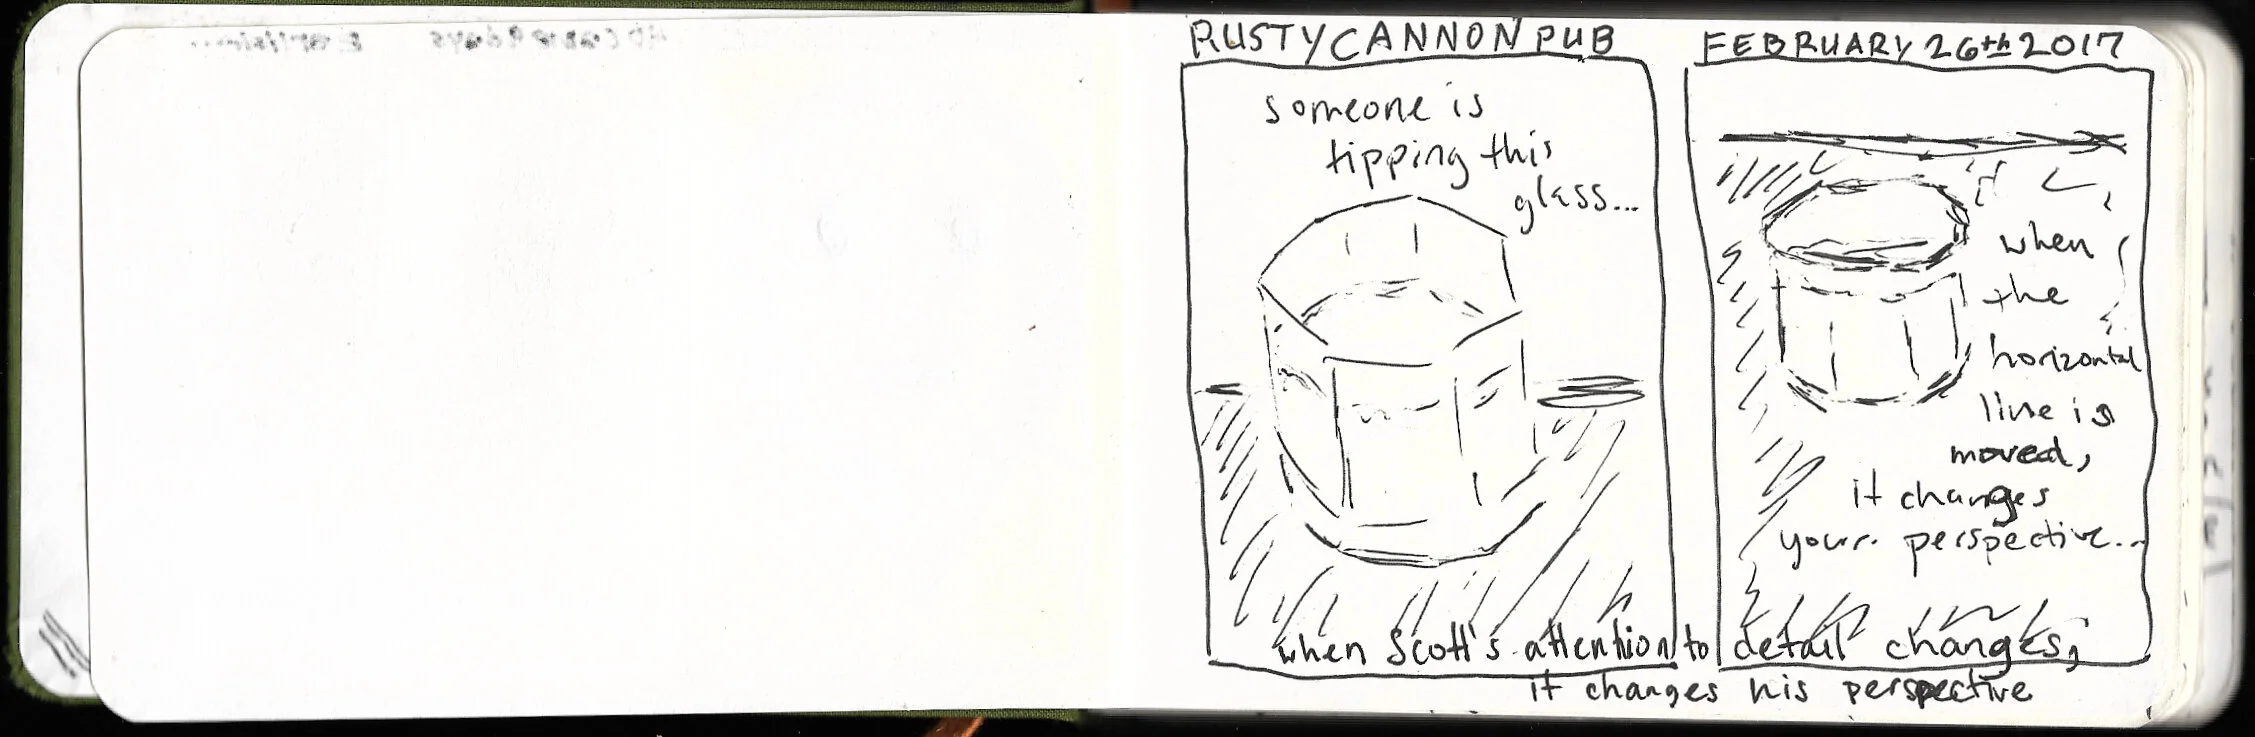 RUSTY CANNON PUB
FEBRUARY 26th 2017
someone is
tipping this
glass...
when
the
horizontal
line is
moved,
it changes
your perspective...
when Scott's attention to detail changes,
it changes his perspective